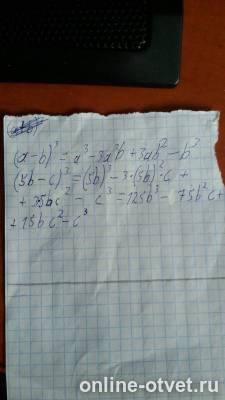 (a-b)³ = a³-3a²b+3ab²-b³
(5b-c)³ = (5b)³-3·(5b)²·c +
+ 35bc² - c³ = 125b³ - 75b²c+
+15bc²-c³
online-otvet.ru